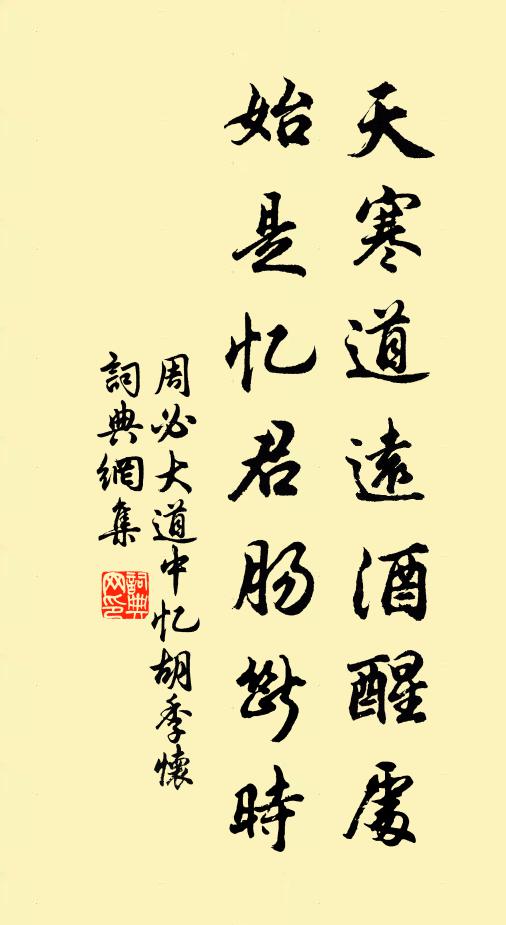 天寒道遠酒醒處
始是忆君肠斷時
周必大道中忆胡季懷
詞典網集
詞典网印